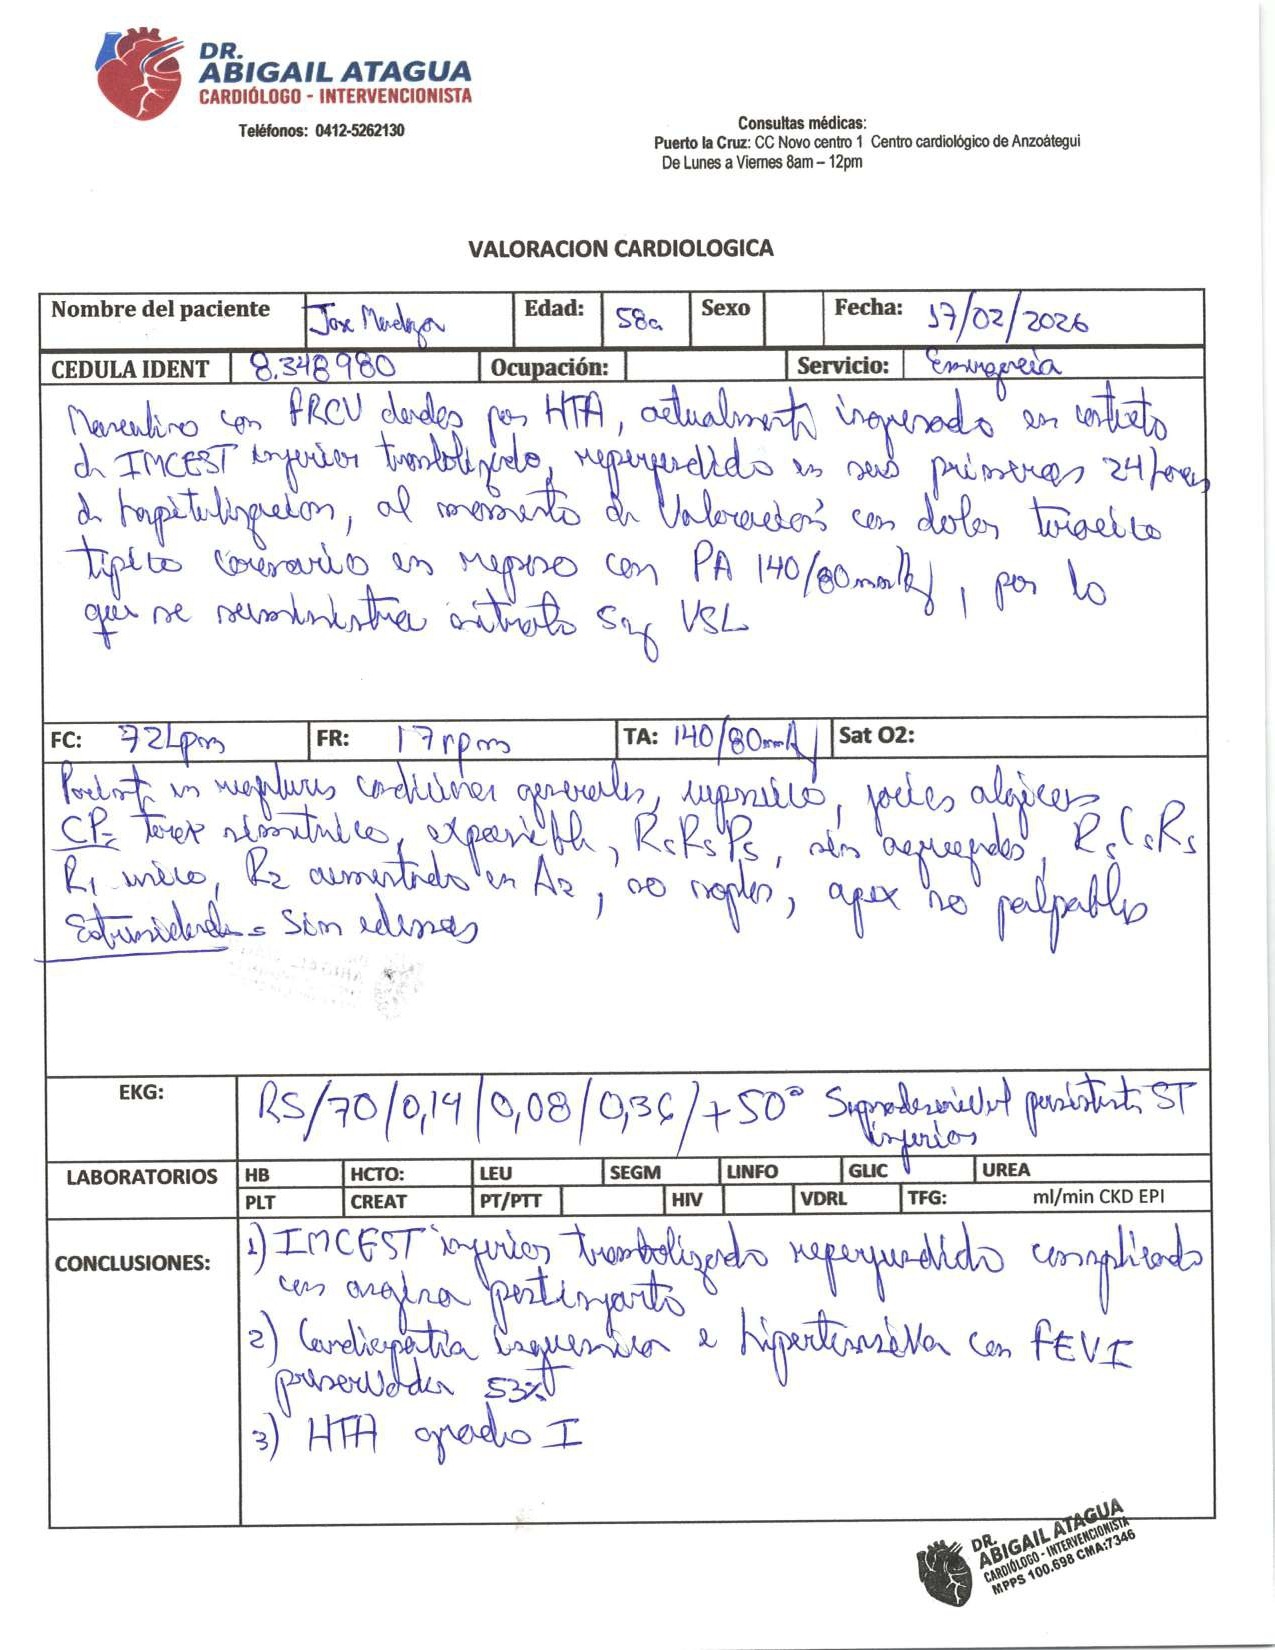 DR.
ABIGAIL ATAGUA
CARDIÓLOGO - INTERVENCIONISTA
Teléfonos: 0412-5262130
Consultas médicas:
Puerto la Cruz: CC Novo centro 1 Centro cardiológico de Anzoátegui
De Lunes a Viernes 8am – 12pm
VALORACION CARDIOLOGICA
Nombre del paciente Jose Mendoza Edad: 58a Sexo Fecha: 17/02/2026
CEDULA IDENT 8.348980 Ocupación: Servicio: Emergencia
Masculino con FRCV dados por HTA, actualmente ingresado en contexto
de IMCEST inferior trombolizado, reperfundido en sus primeras 24 horas
de hospitalización, al momento de valoración con dolor toracico
tipico coronario en reposo con PA 140/80mmHg, por lo
que se suministra nitrato 5mg VSL
FC: 72Lpm FR: 17rpm TA: 140/80mmHg Sat O2:
Paciente en regulares condiciones generales, facies algicas
CP= torax simetrico, expansible, RsRsPs, sin agregados, RsCsRs
R1 unico, R2 aumentado en A2, no soplos, apex no palpable
Extremidades= Sin edemas
EKG: RS/70/0,14/0,08/0,36/+50° Supradesnivel persistente ST
inferior
LABORATORIOS HB HCTO: LEU SEGM LINFO GLIC UREA
PLT CREAT PT/PTT HIV VDRL TFG: ml/min CKD EPI
CONCLUSIONES: 1) IMCEST inferior trombolizado reperfundido complicado
con angina postinfarto
2) Cardiopatia isquemica e hipertensiva con FEVI
preservada 53%
3) HTA grado I
DR.
ABIGAIL ATAGUA
CARDIÓLOGO - INTERVENCIONISTA
MPPS 100.698 CMA:7346